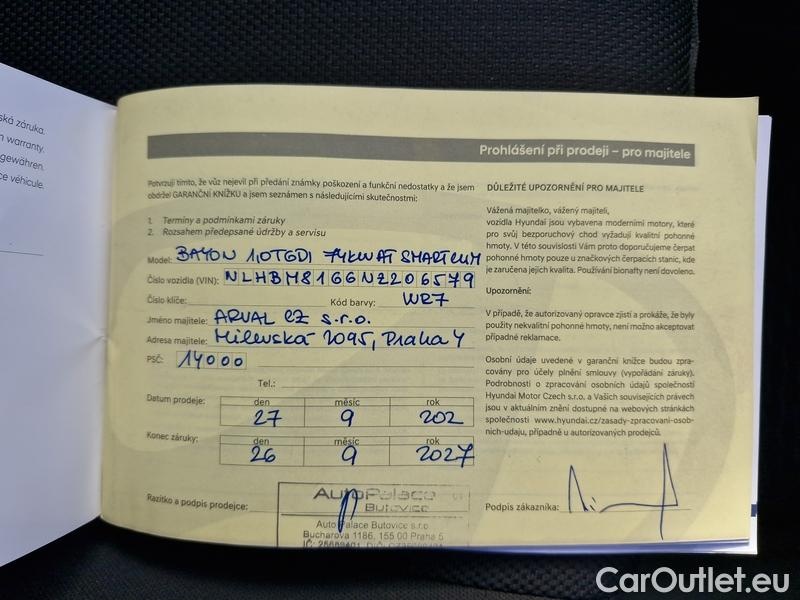 ská záruka.
n warranty.
gewähren.
ce véhicule.
Prohlášení při prodeji – pro majitele
Potvrzuji tímto, že vůz nejevil při předání známky poškození a funkční nedostatky a že jsem
obdržel GARANČNÍ KNÍŽKU a jsem seznámen s následujícími skutečnostmi:
1. Termíny a podmínkami záruky
2. Rozsahem předepsané údržby a servisu
Model: BAYON 1,0TGDI 74KW AT SMART
Číslo vozidla (VIN): NLHBM81GGNZ206579
Číslo klíče: Kód barvy: WR7
Jméno majitele: ARVAL CZ s.r.o.
Adresa majitele: Milevská 2095, Praha 4
PSČ: 14000
Tel.:
Datum prodeje: den měsíc rok
27 9 202
Konec záruky: den měsíc rok
26 9 2027
Razítko a podpis prodejce:
AutoPalace
Butovice
Auto Palace Butovice s.r.o.
Bucharova 1186, 155 00 Praha 5
DŮLEŽITÉ UPOZORNĚNÍ PRO MAJITELE
Vážená majitelko, vážený majiteli,
vozidla Hyundai jsou vybavena moderními motory, které
pro svůj bezporuchový chod vyžadují kvalitní pohonné
hmoty. V této souvislosti Vám proto doporučujeme čerpat
pohonné hmoty pouze u značkových čerpacích stanic, kde
je zaručena jejich kvalita. Používání bionafty není dovoleno.
Upozornění:
V případě, že autorizovaný opravce zjistí a prokáže, že byly
použity nekvalitní pohonné hmoty, není možno akceptovat
případné reklamace.
Osobní údaje uvedené v garanční knížce budou zpra-
covány pro účely plnění smlouvy (vypořádání záruky).
Podrobnosti o zpracování osobních údajů společností
Hyundai Motor Czech s.r.o. a Vašich souvisejících právech
jsou v aktuálním znění dostupné na webových stránkách
společnosti www.hyundai.cz/zasady-zpracovani-osob-
nich-udaju, případně u autorizovaných prodejců.
Podpis zákazníka:
CarOutlet.eu